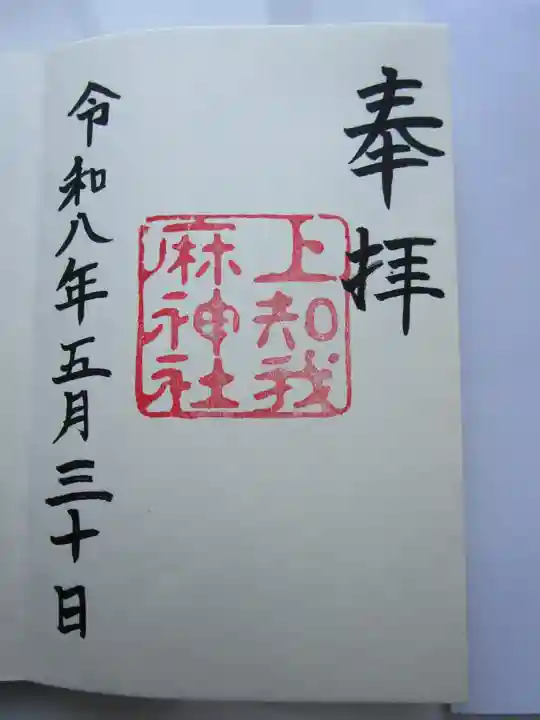 奉拝
上知我
麻神社
令和八年五月三十日